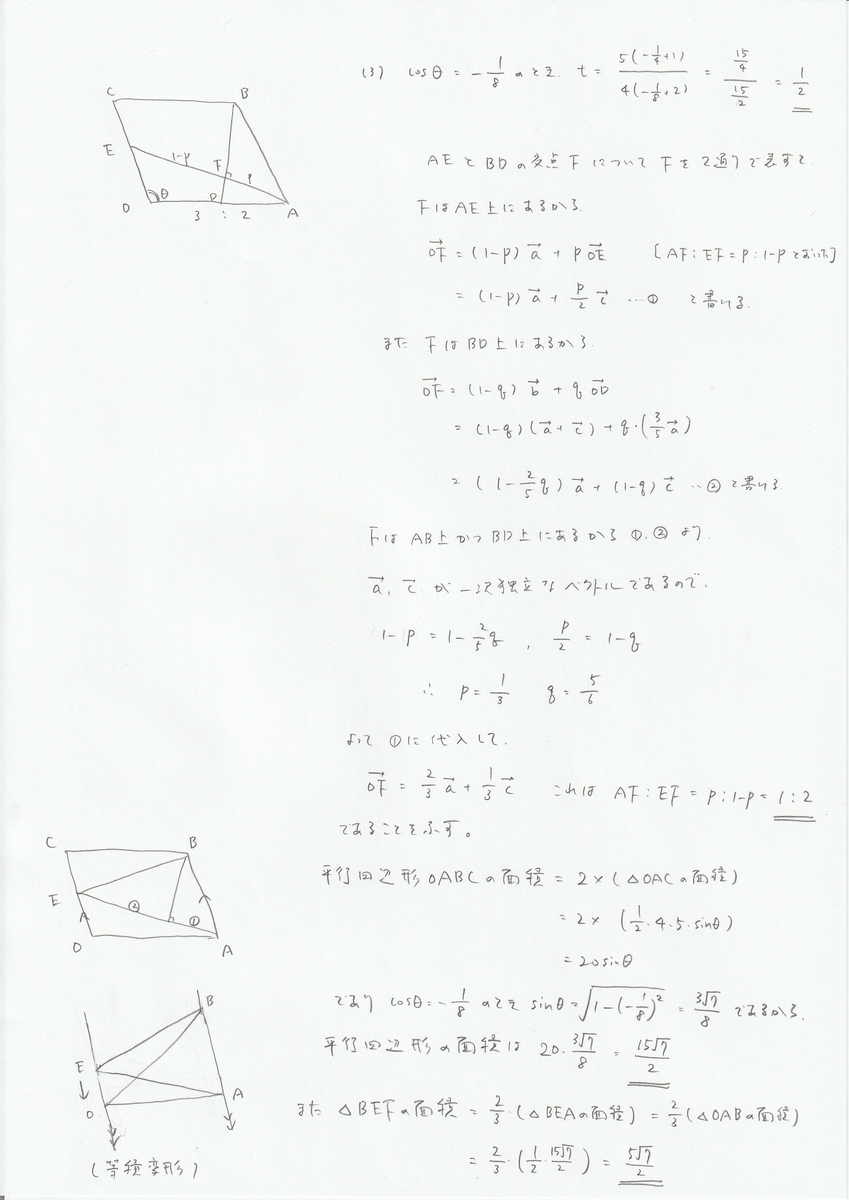 (3) cosθ = -1/8 のとき t = 5(-1/4+1) / 4(-1/8+2) = (15/4)/(15/2) = 1/2
C B E 1-p F p O θ D A 3 : 2
AEとBDの交点Fについて Fを2通りで表すと
FはAE上にあるから.
→OF = (1-p)→a + p→OE [AF:EF = p:1-p とおいた]
= (1-p)→a + p/2 →c …① と書ける.
また FはBD上にあるから.
→OF = (1-q)→b + q→OD
= (1-q)(→a + →c) + q・(3/5 →a)
= (1 - 2/5 q)→a + (1-q)→c …② と書ける
FはAB上かつBD上にあるから ①, ②より.
→a, →c が一次独立なベクトルであるので.
1-p = 1 - 2/5 q , p/2 = 1-q
∴ p = 1/3 q = 5/6
よって ①に代入して.
→OF = 2/3 →a + 1/3 →c これは AF:EF = p:1-p = 1:2
であることを示す。
C B E ② ① O A
平行四辺形OABCの面積 = 2×(△OACの面積)
= 2×(1/2・4・5・sinθ)
= 20sinθ
であり cosθ = -1/8 のとき sinθ = √(1-(-1/8)²) = 3√7/8 であるから.
平行四辺形の面積は 20・3√7/8 = 15√7/2
B E A O
また △BEFの面積 = 2/3・(△BEAの面積) = 2/3(△OABの面積)
= 2/3・(1/2・15√7/2) = 5√7/2
(等積変形)